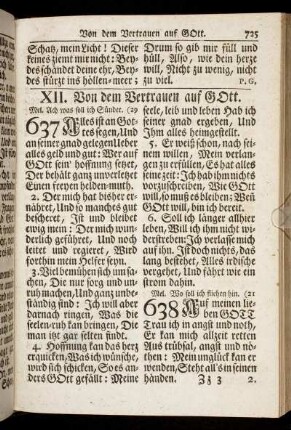 Von dem Vertrauen auf GOtt. 725
Schatz, mein Licht! Dieser
keines ziemt mir nicht: Bey-
des schändet deine ehr, Bey-
des stürtz ins höllen-meer;
Drum so gib mir füll und
hüll, Also, wie dein hertze
will, Nicht zu wenig, nicht
zu viel. P. G.
XII. Von dem Vertrauen auf GOtt.
Mel. Ach was soll ich Sünder. (29
637 Alles ist an Got-
tes segen, Und
an seiner gnad gelegen Ueber
alles geld und gut: Wer auf
GOtt sein' hoffnung setzet,
Der behält ganz unverletzet
Einen freyen helden-muth.
2. Der mich hat bisher er-
nähret, Und so manches gut
bescheret, Ist und bleibet
ewig mein: Der mich wun-
derlich geführet, Und noch
leitet und regieret, Wird
forthin mein Helfer seyn.
3. Viel bemühen sich um sa-
chen, Die nur sorg und un-
ruh machen, Und ganz unbe-
ständig sind: Ich will aber
darnach ringen, Was die
seelen-ruh kan bringen, Die
man itzt gar selten findt.
4. Hoffnung kan das herz
erquicken, Was ich wünsche,
wird sich schicken, So es an-
ders GOtt gefällt: Meine
seele, leib und leben Hab ich
seiner gnad ergeben, Und
Ihm alles heimgestellt.
5. Er weiß schon, nach sei-
nem willen, Mein verlan-
gen zu erfüllen, Es hat alles
seine zeit: Ich hab ihm nichts
vorzuschreiben, Wie GOtt
will, so muß es bleiben: Wenn
GOtt will, bin ich bereit.
6. Soll ich länger allhier
leben, Will ich ihm nicht wi-
derstreben: Ich verlasse mich
auf ihn. Ist doch nichts, das
lang bestehet, Alles irdische
vergehet, Und fährt wie ein
strom dahin.
Mel. Wo soll ich fliehen hin. (21
638 Auf meinen lie-
ben GOTT
Trau ich in angst und noth,
Er kan mich allzeit retten
Aus trübsal, angst und nö-
then: Mein unglück kan er
wenden, Steht all's in seinen
händen. Zz 3 2.